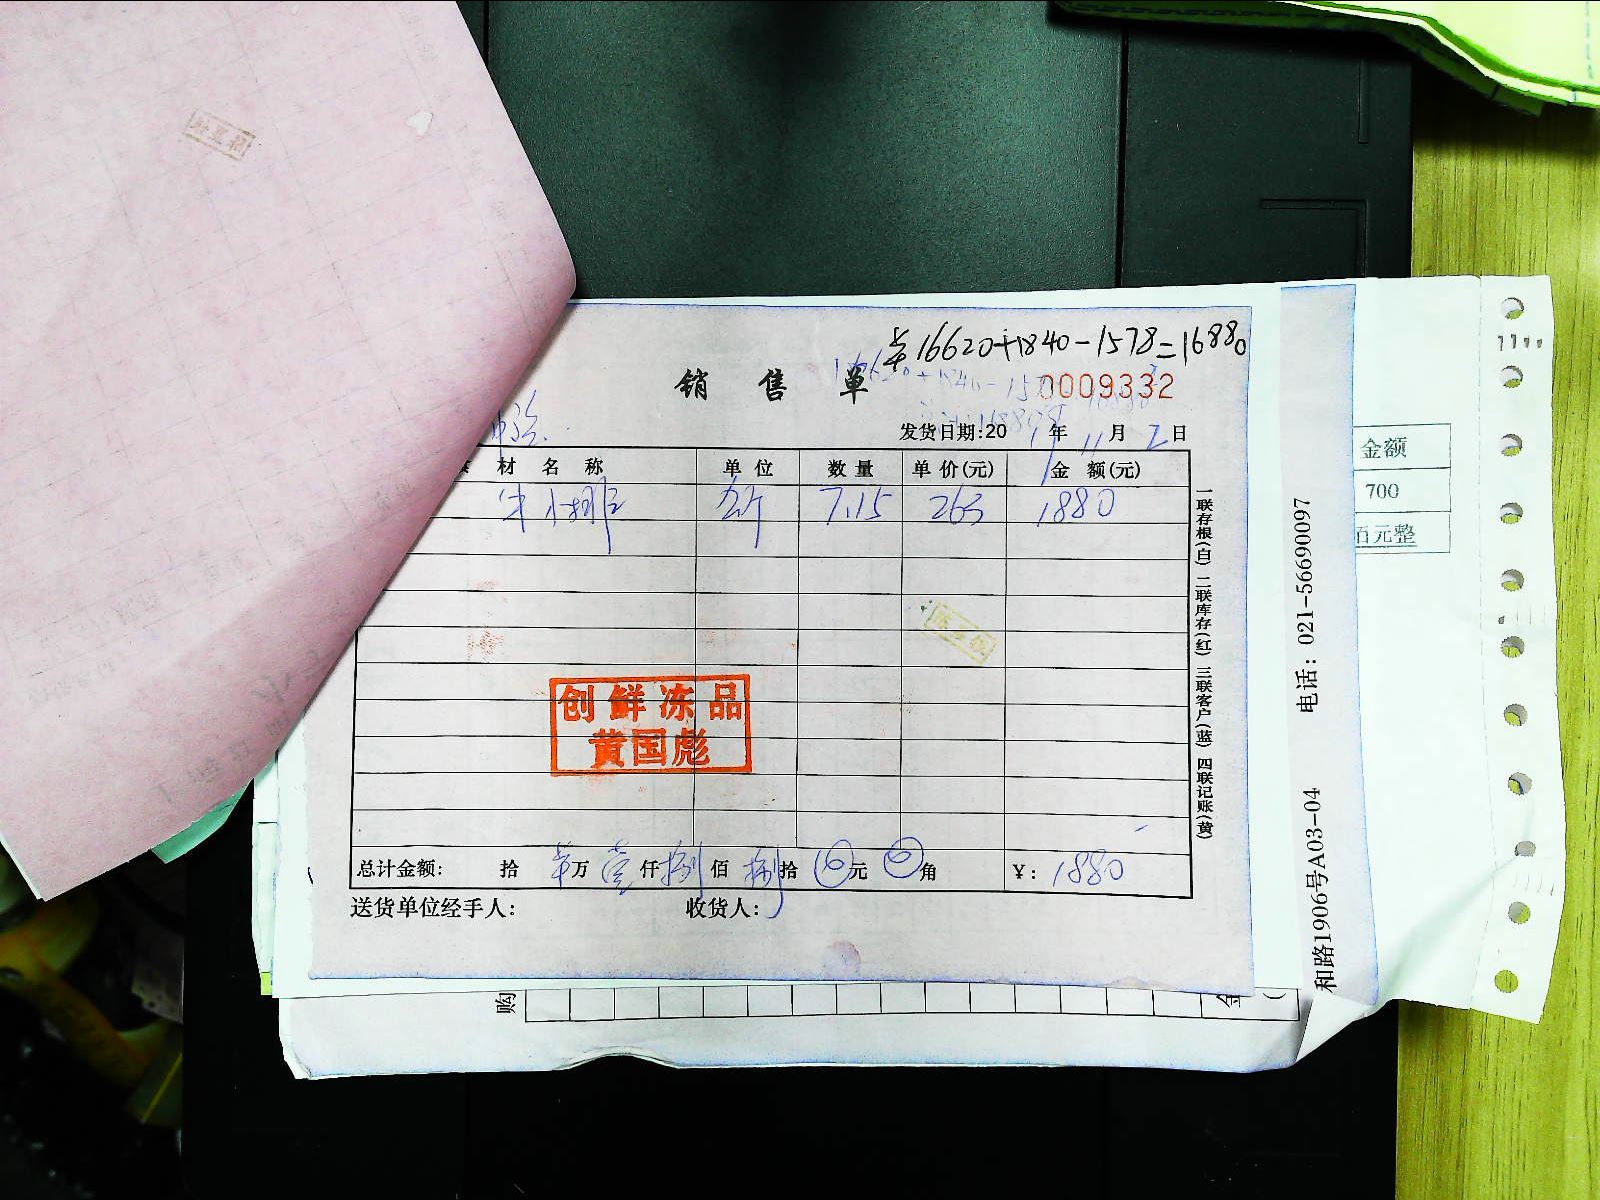 16620+1840-1578=16880
销售单
0009332
发货日期:20 年 11 月 2 日
材名称 单位 数量 单价(元) 金额(元)
牛小排 7.15 263 1880
创鲜冻品
黄国彪
总计金额: 拾 万 壹仟 捌佰 捌拾 元 角 ¥: 1880
送货单位经手人: 收货人:
一联存根(白) 二联库存(红) 三联客户(蓝) 四联记账(黄)
和路1906号A03-04 电话: 021-56690097
金额
700
佰元整
购